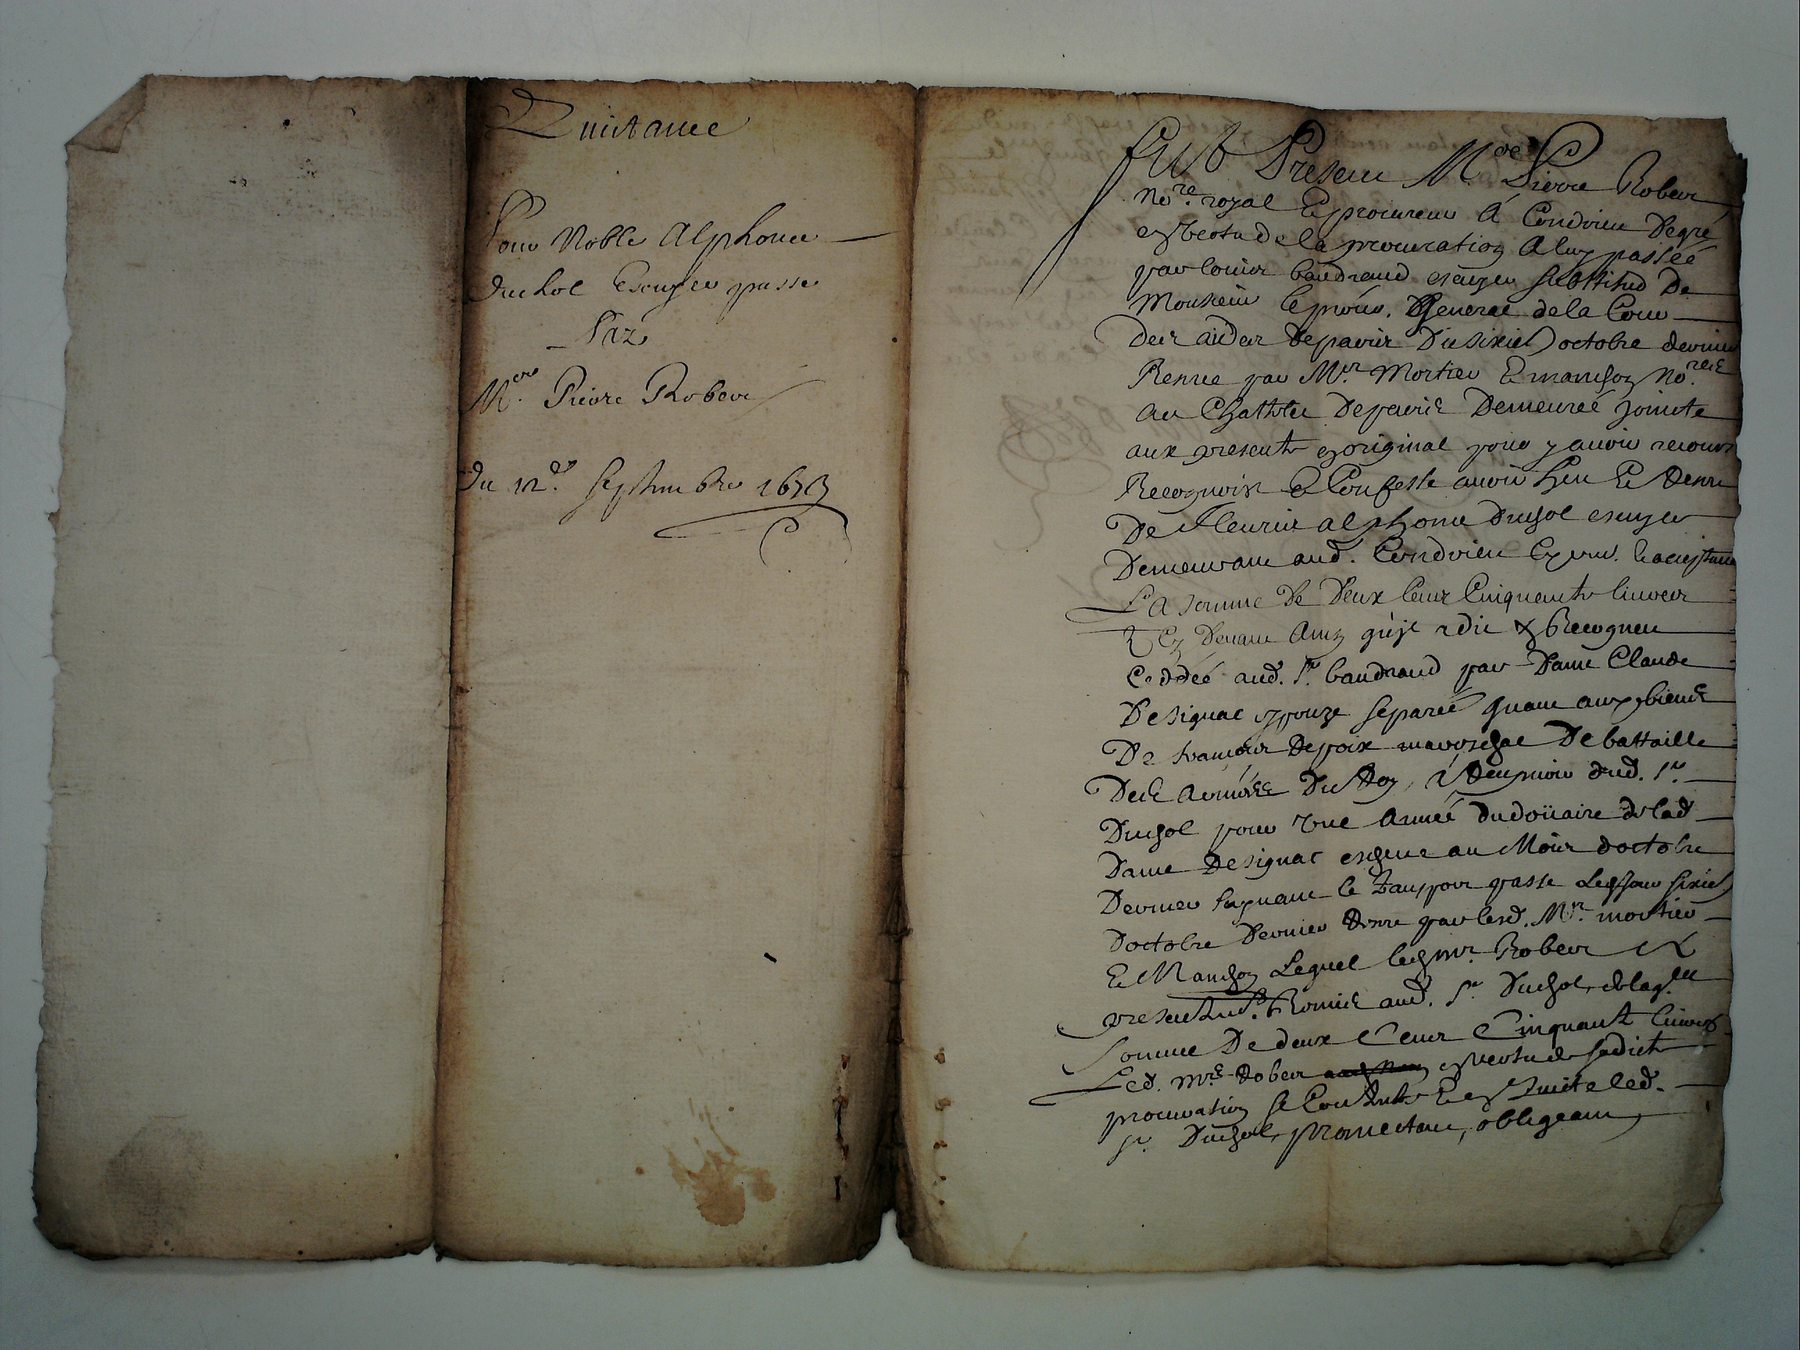 Quittance
Pour Noble Alphonce
du hol Escuyer passe
Par
Mere Pierre Robert
du 12e Septembre 1673
fut Present Mre Pierre Robert
Nore royal & procureur A Condrieu Degré
en vertu de la procuration A luy passéé
par louis baudrand escuyer substitud De
Monsieur le procu. General de la Cour
Des aides de paris Du sixie octobre dernier
Receue par Mrs Mortier & manchon Nores
Au Chatelet De paris Demeuréé Joincte
aux presentes en original pour y avoir recours
Recognoist & Confesse avoir heu & Receu
De fleuris alphonce Duhol escuyer
Demeurant aud. Condrieu & acceptant
La somme De Deux Cens Cinquante livres
& Recogneu
Ceddéé aud. Sr. baudrand par Dame Claude
De signac espouze separéé quant aux biens
De De foix mareschal De battaille
Des Armées Du Roy, dud. Sr.
Duhol pour Une Année du doüaire de lad
Dame De signac escheue au Mois doctobre
Dernier suyvant le transport passe Led. jour sixie
Doctobre Dernier Receu par lesd. Mrs. mortier
& Manchon Lequel led. mre Robert A
presentemt. Remis aud. Sr. Duhol, de laqlle
Somme De deux Cens Cinquante livres
Led. mre Robert en vertu de sadicte
procuration se Contente & en Quitte led.
Sr. Duhol, promettant, obligeant